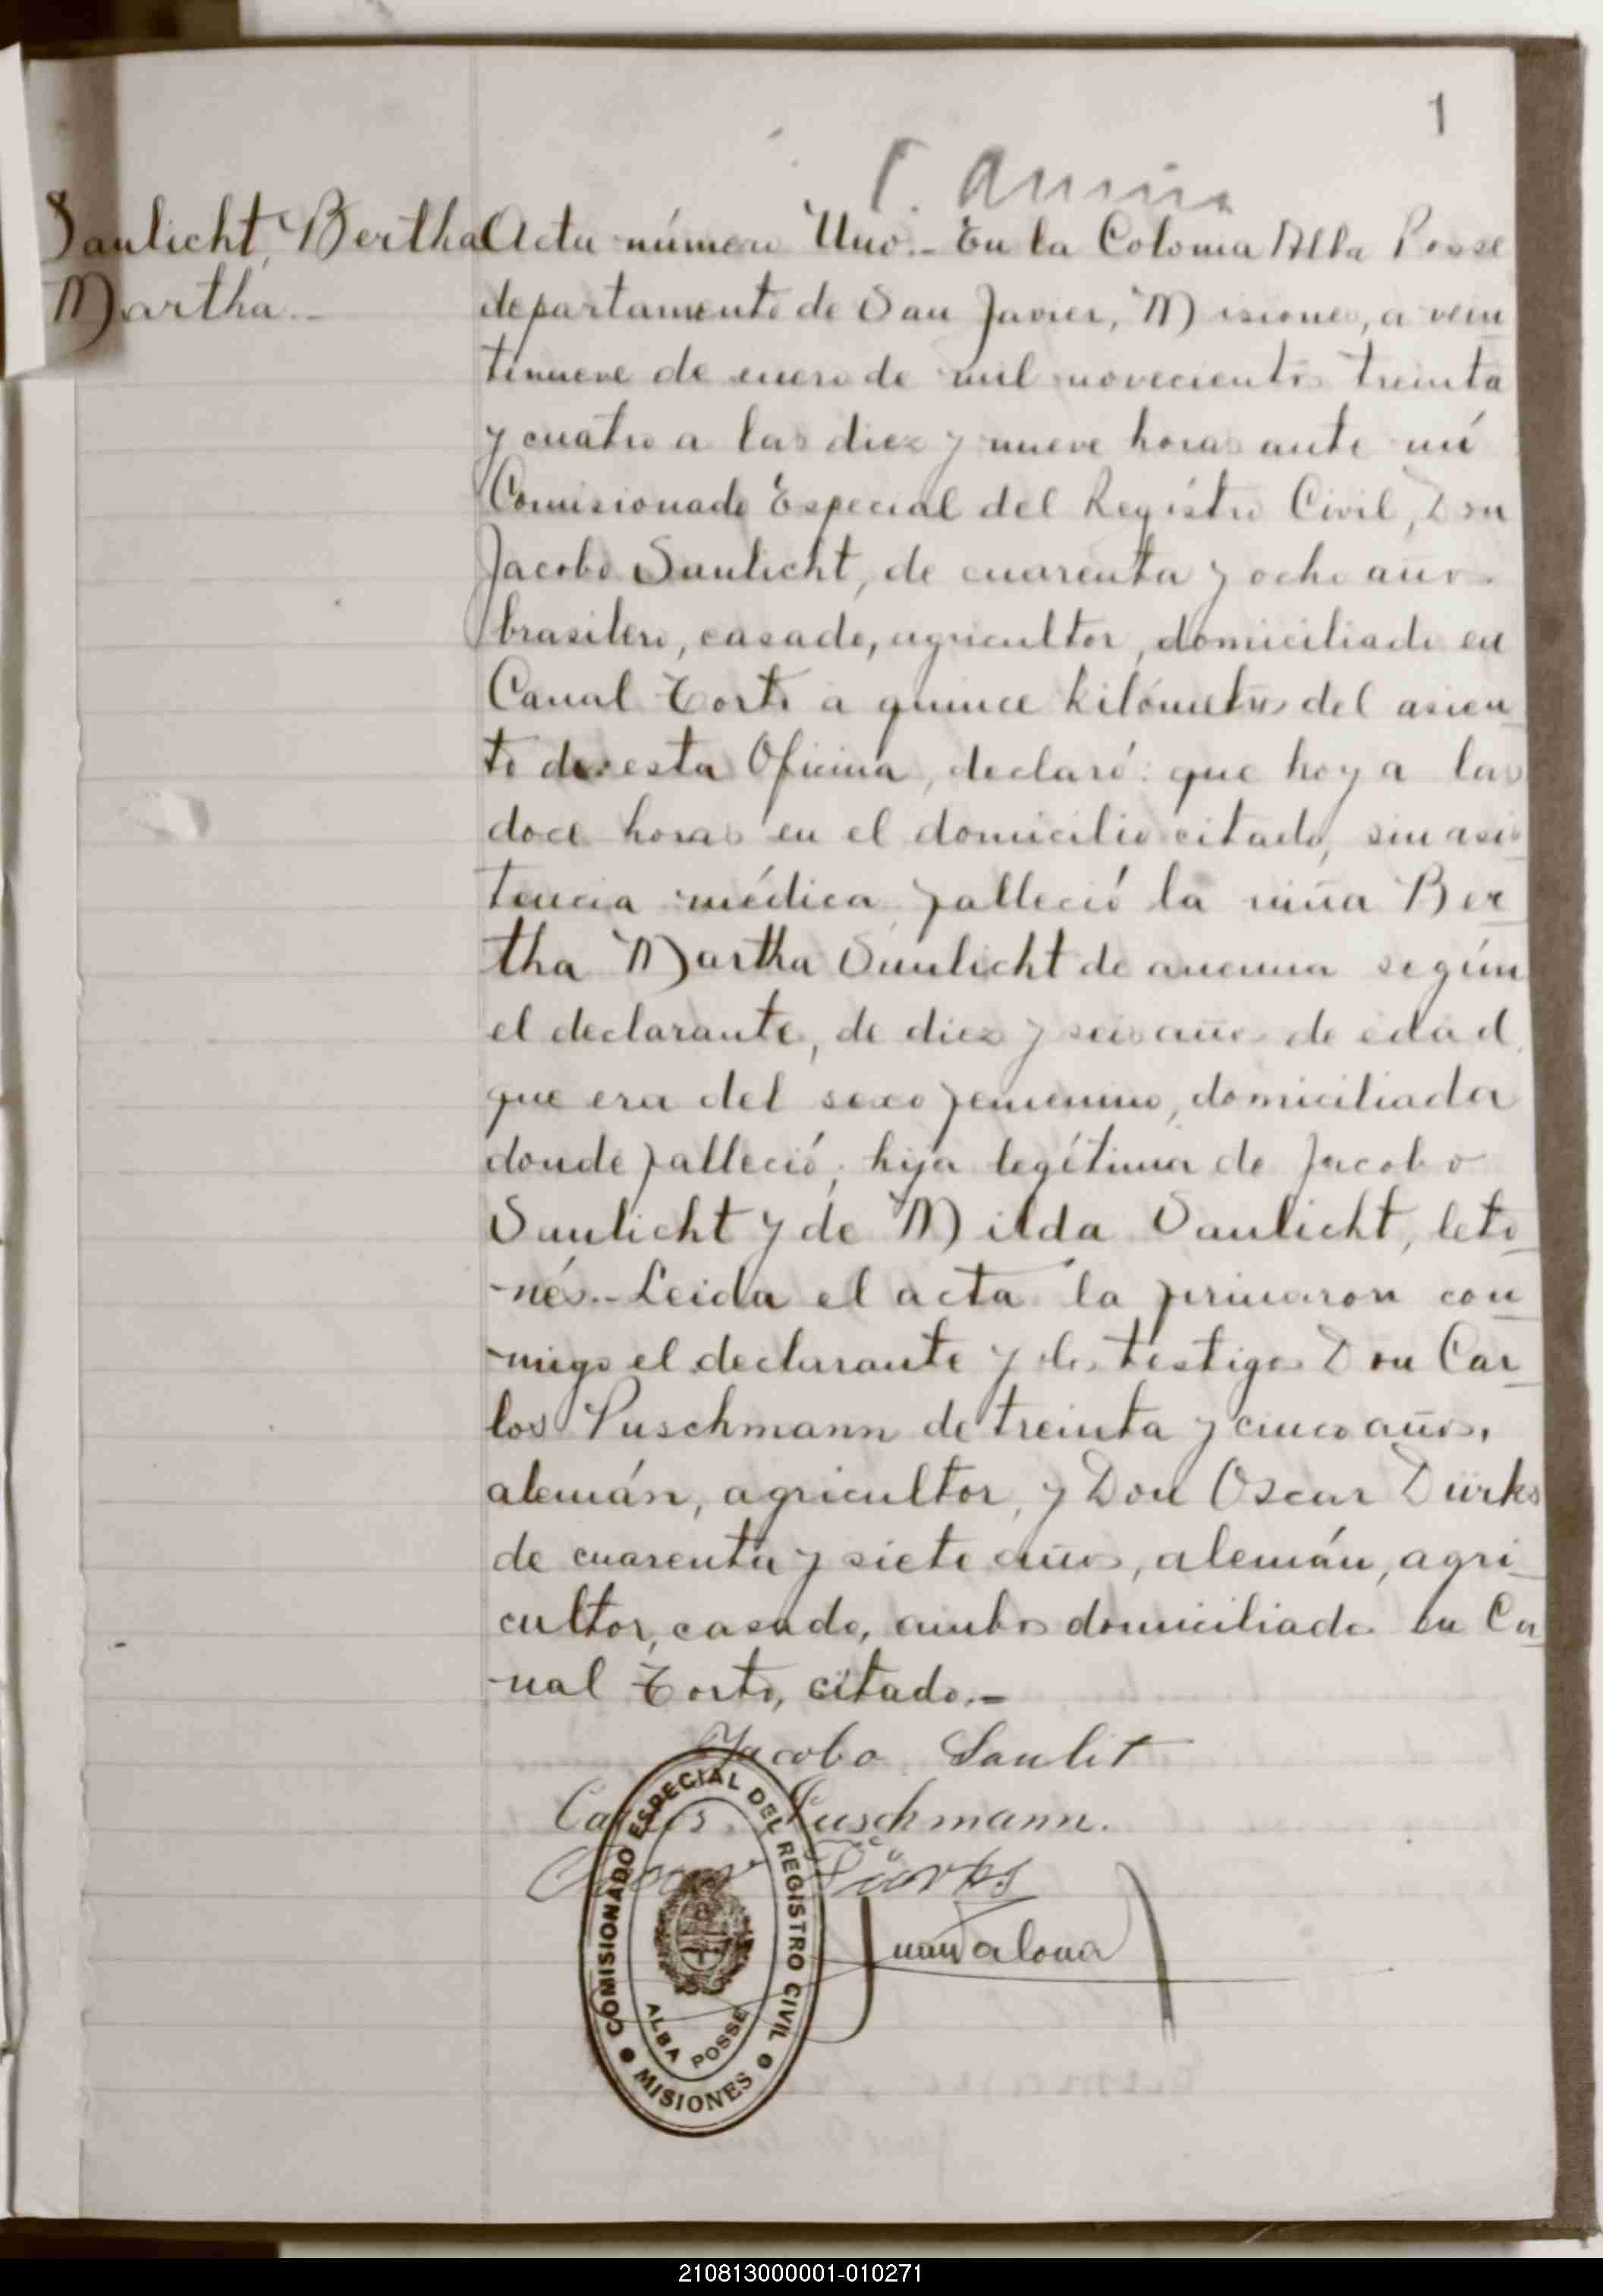 1
Saulicht, Bertha
Martha.-
Acta número Uno.- En la Colonia Alba Posse
departamento de San Javier, Misiones, a vein
tinueve de enero de mil novecientos treinta
y cuatro a las diez y nueve horas ante mí
Comisionado Especial del Registro Civil, Don
Jacobo Saulicht, de cuarenta y ocho años
brasilero, casado, agricultor, domiciliado en
Canal Torto a quince kilómetros del asien
to de esta Oficina, declaró: que hoy a las
doce horas en el domicilio citado, sin asis
tencia médica falleció la niña Ber
tha Martha Saulicht de anemia según
el declarante, de diez y seis años de edad
que era del sexo femenino, domiciliada
donde falleció; hija legítima de Jacobo
Saulicht y de Milda Saulicht, leto
-nés.- Leida el acta la firmaron con
-migo el declarante y los testigos Don Car
los Puschmann de treinta y cinco años,
alemán, agricultor, y Don Oscar Dürks
de cuarenta y siete años, alemán, agri
cultor, casado, ambos domiciliados en Ca
-nal Torto, citado.-
Jacobo Saulit
Carlos Puschmann.
Oscar Dürks
Juan
COMISIONADO ESPECIAL DEL REGISTRO CIVIL
ALBA POSSE
MISIONES
210813000001-010271